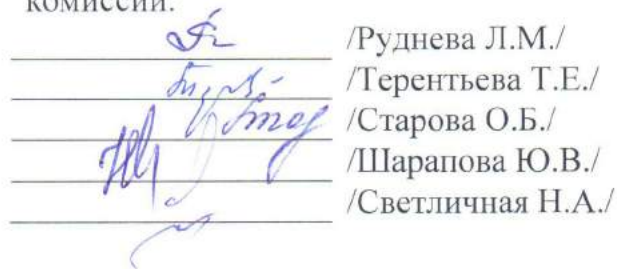 комиссии:
/Руднева Л.М./
/Терентьева Т.Е./
/Старова О.Б./
/Шарапова Ю.В./
/Светличная Н.А./